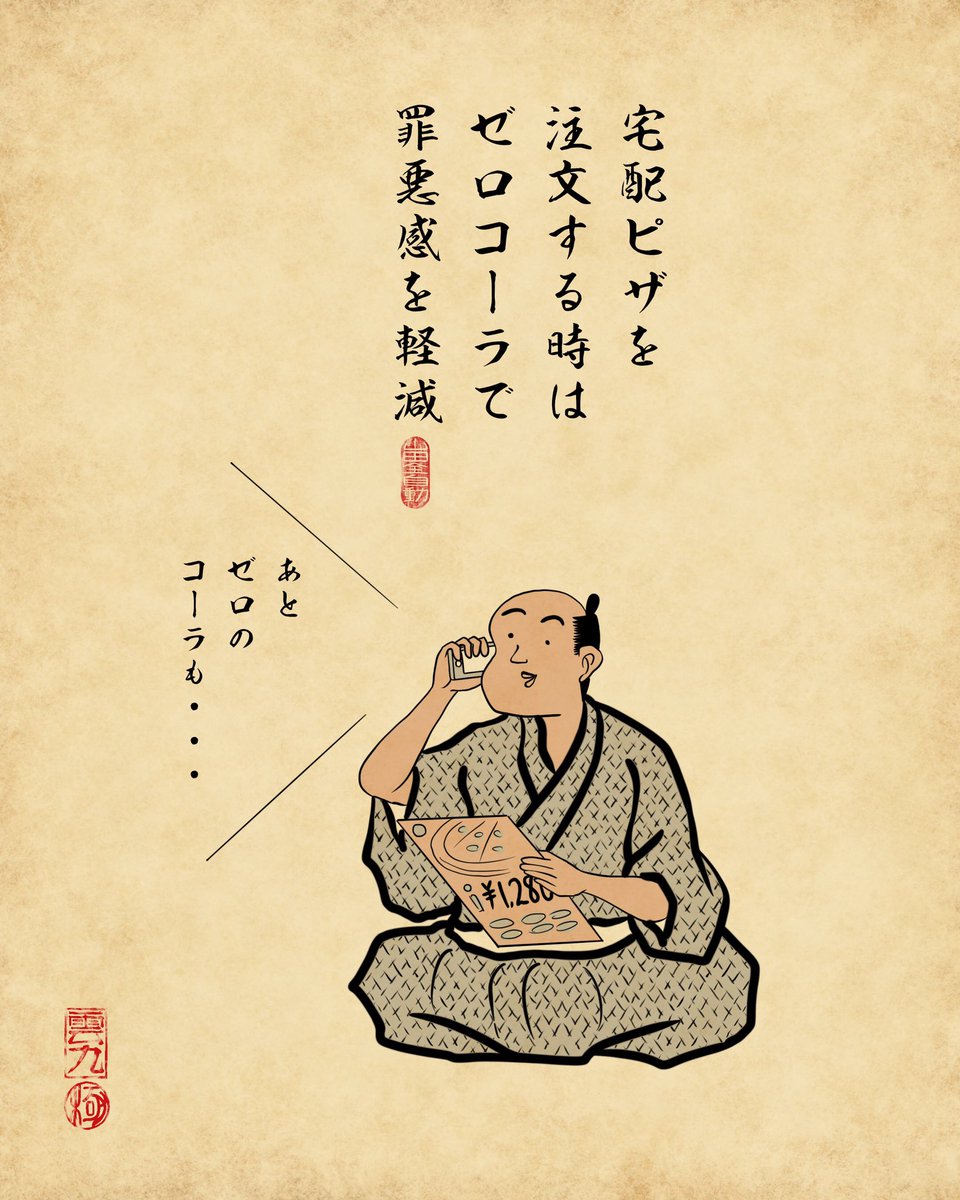 宅配ピザを
注文する時は
ゼロコーラで
罪悪感を軽減
あと
ゼロの
コーラも・・・
¥1,280